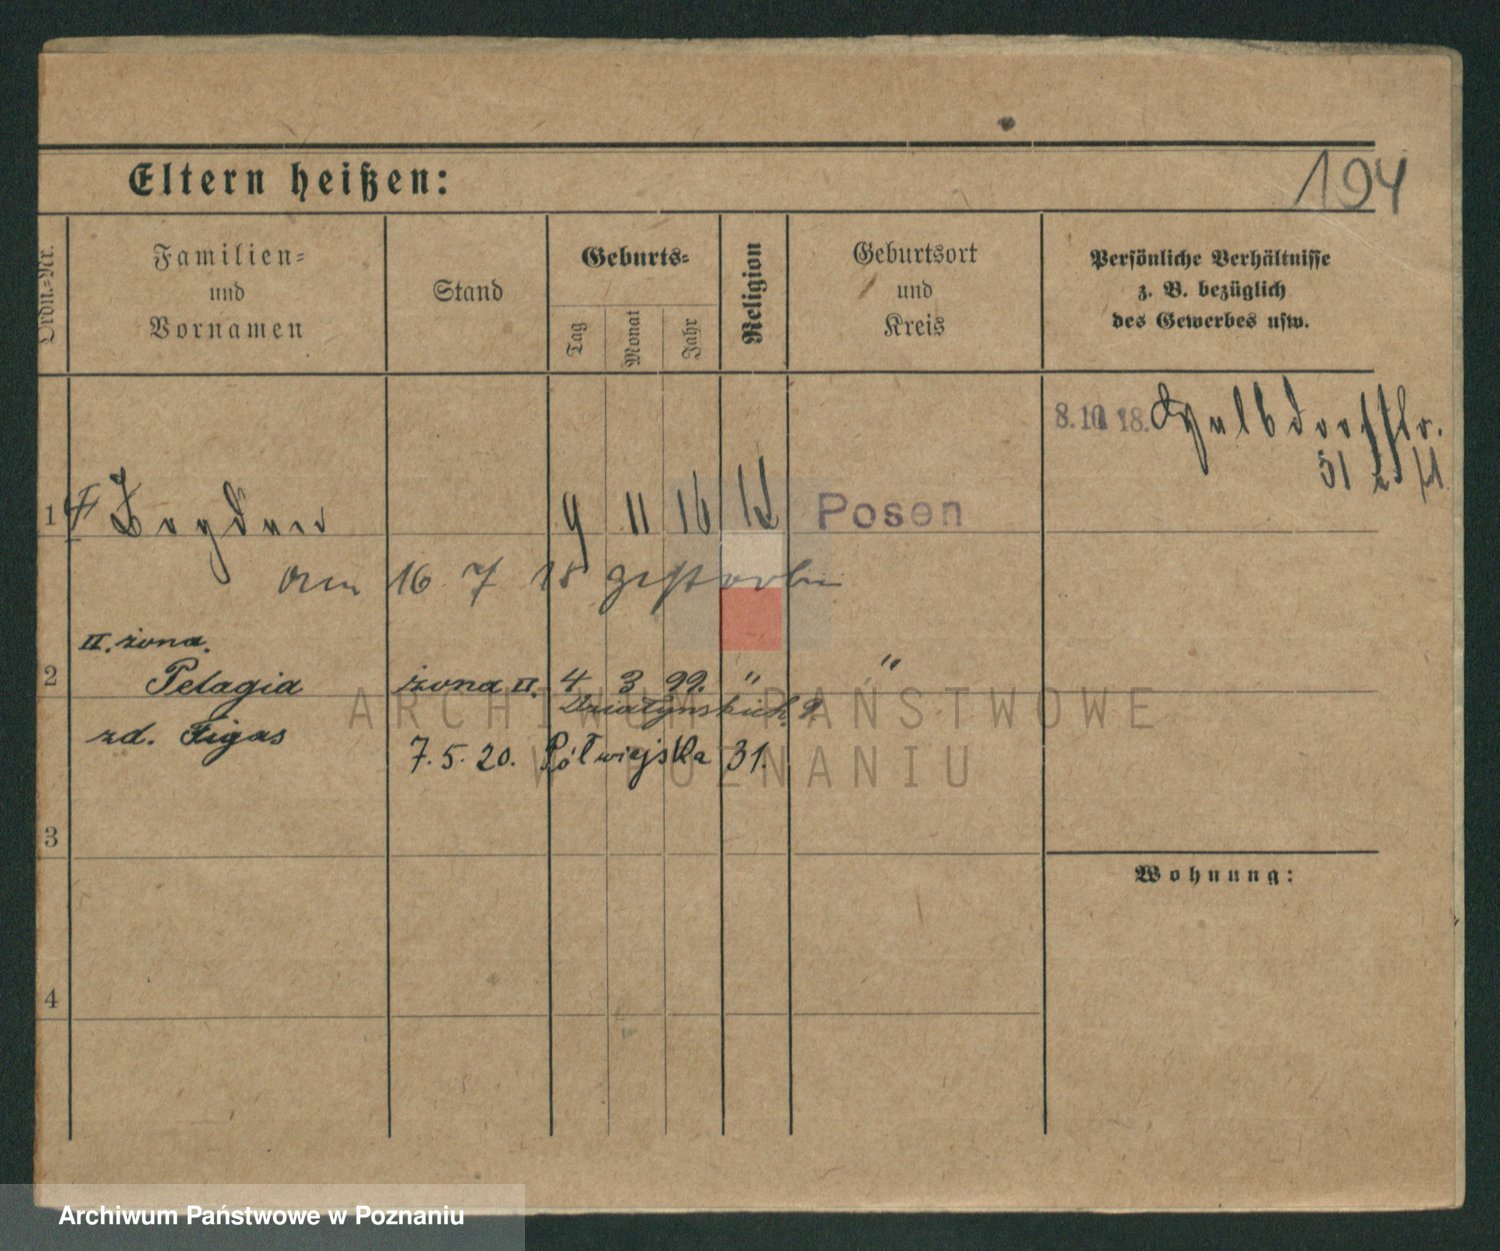 194
Eltern heißen:
Ordn.-Nr.
Familien-
und
Vornamen
Stand
Geburts-
Tag
Monat
Jahr
Religion
Geburtsort
und
Kreis
Persönliche Verhältnisse
z. B. bezüglich
des Gewerbes usw.
8.10 18.
31
1 9 11 16 Posen
am 16 7 18 gestorben
II. żona.
2 Pelagia żona II. 4 3 99. " "
Działyńskich 9
zd. Figas
7. 5. 20. Półwiejska 31.
3
Wohnung:
4
ARCHIWUM PAŃSTWOWE
W POZNANIU
Archiwum Państwowe w Poznaniu